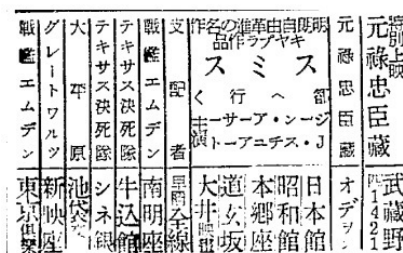 特別上映
元祿忠臣藏
武藏野
四1421
元祿忠臣藏
オデヲン
明朗自由革進の名作
キヤプラ作品
スミス
都へ行く
ジーン・アーサー
J・スチユアート
主演
日本館
昭和館
本郷座
道玄坂
大井映
支配者
全線
戰艦エムデン
南明座
テキサス決死隊
牛込館
テキサス決死隊
シネ銀
大平原
池袋
グレートワルツ
新映座
戰艦エムデン
東京倶楽